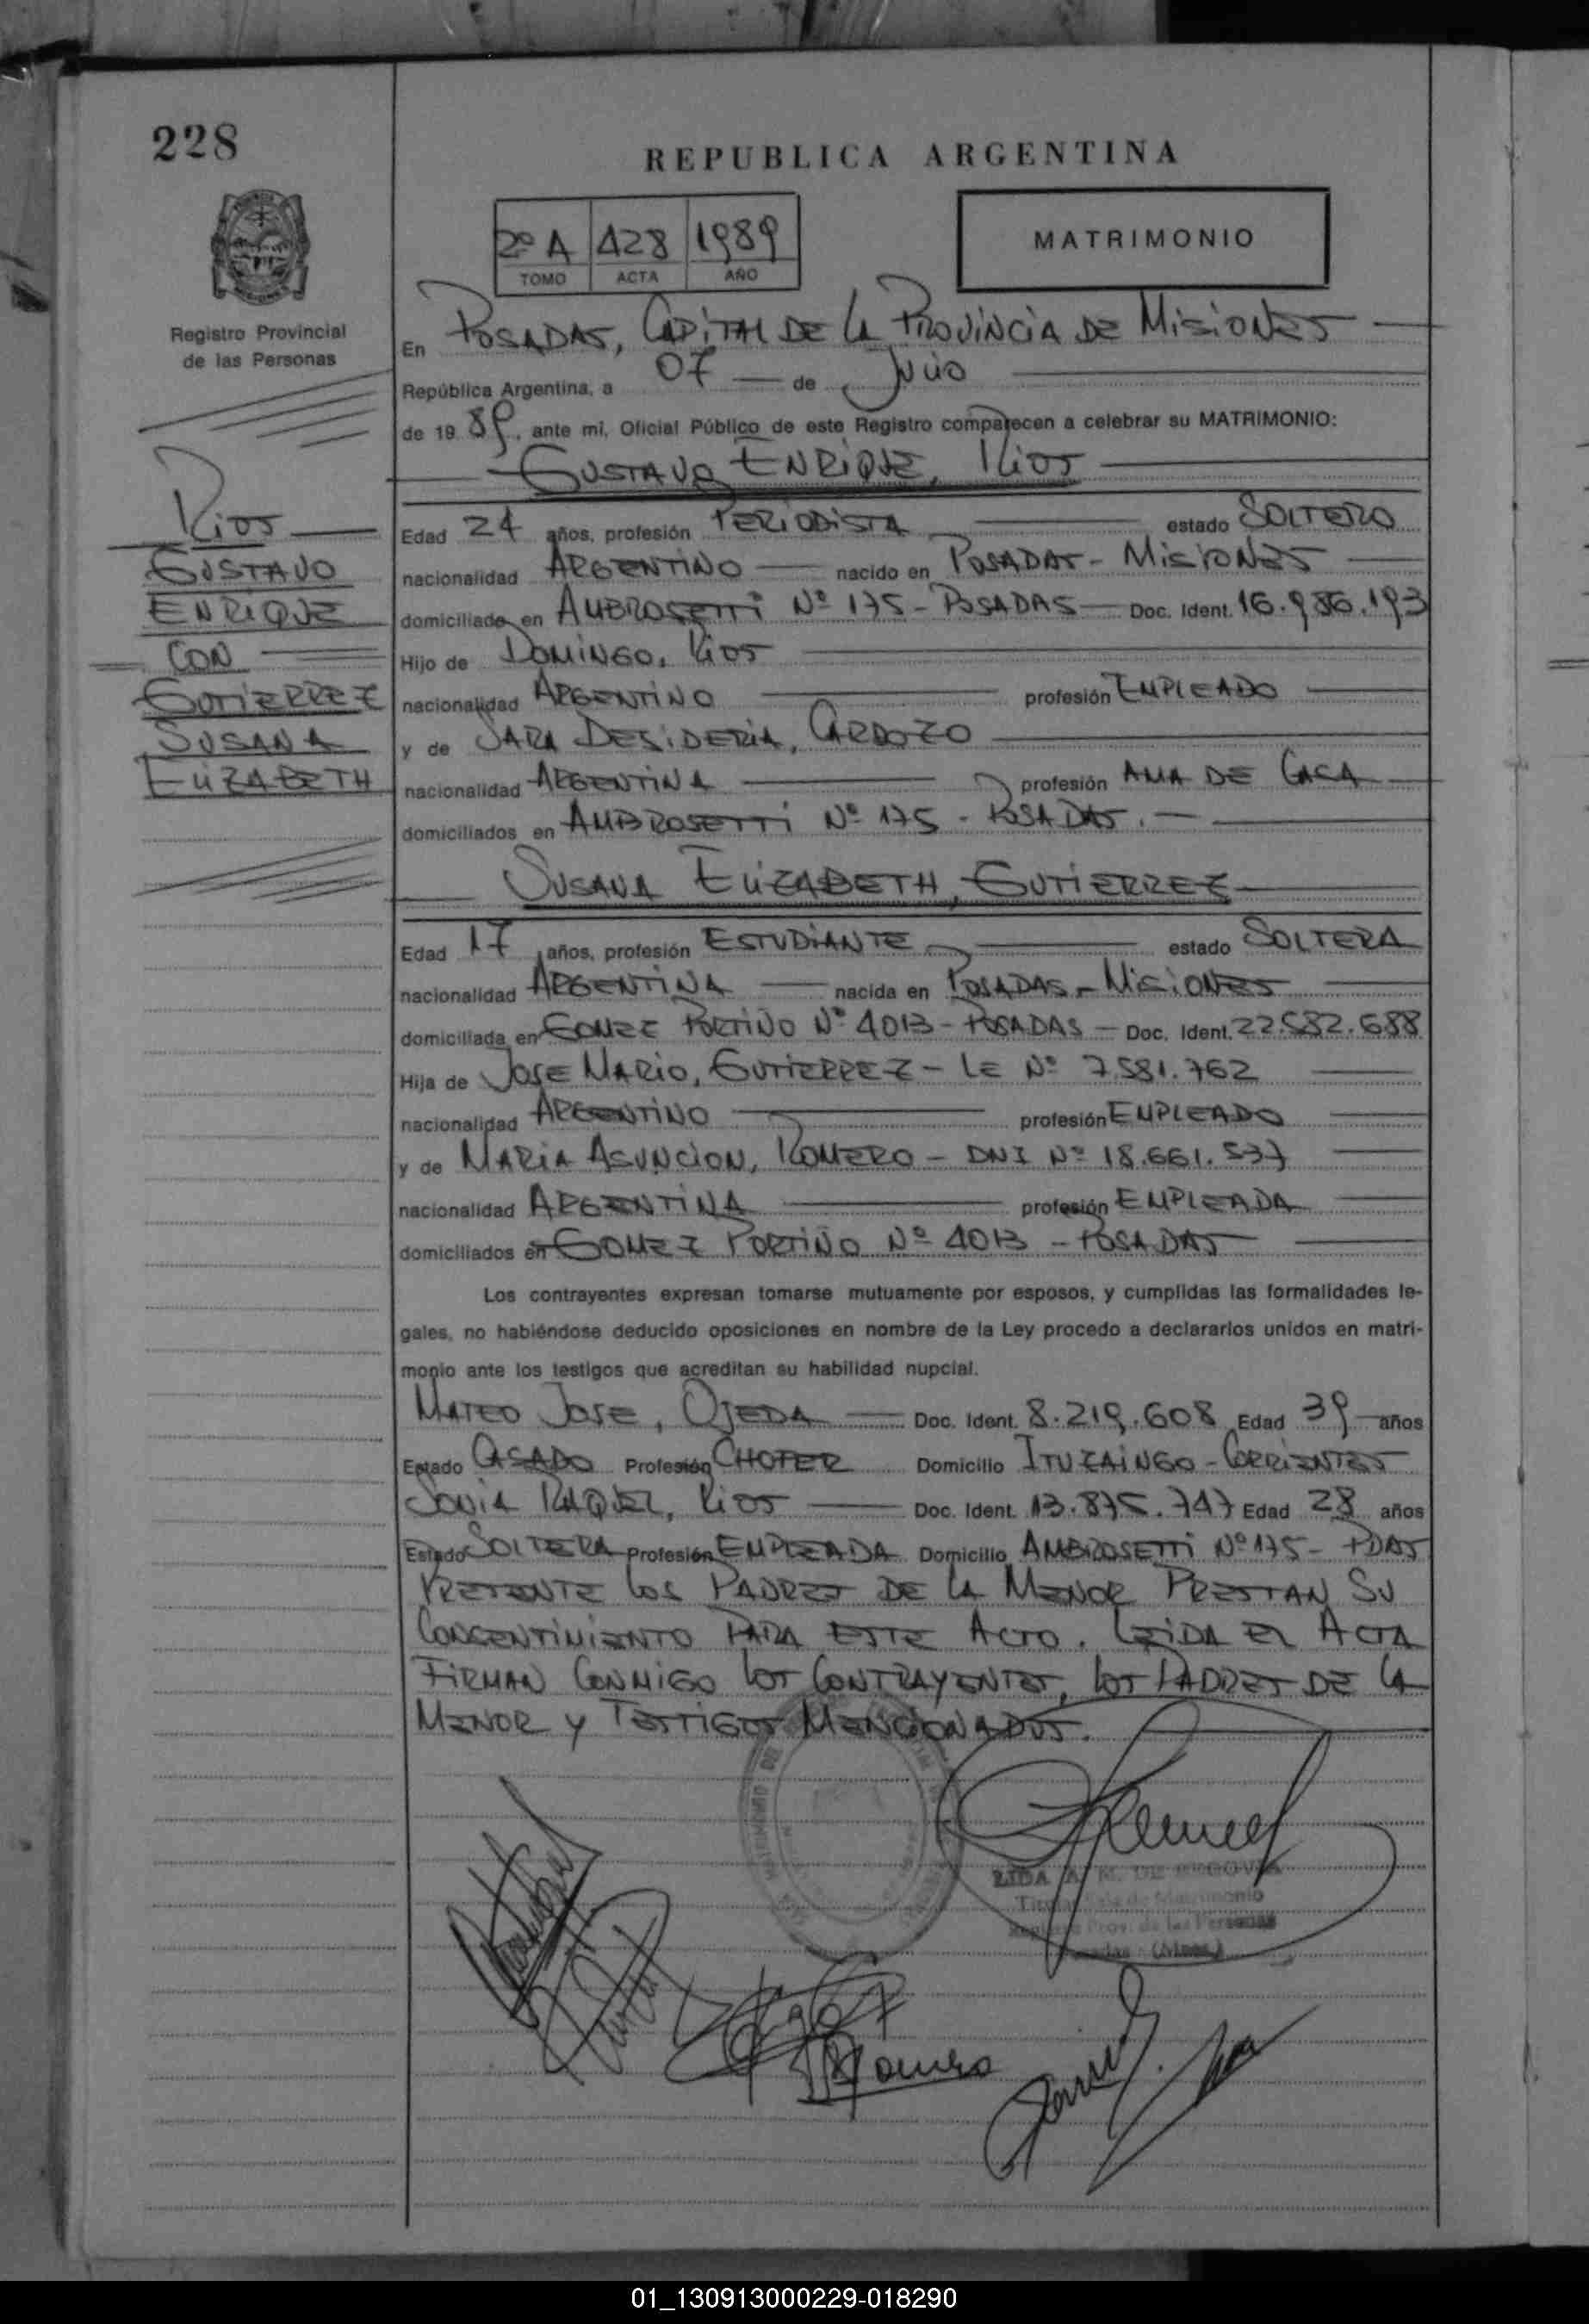 228
REPUBLICA ARGENTINA
2º A 428 1989
TOMO ACTA AÑO
MATRIMONIO
Registro Provincial
de las Personas
En POSADAS, CAPITAL DE LA PROVINCIA DE MISIONES
República Argentina, a 07 de JULIO
de 1989, ante mí, Oficial Público de este Registro comparecen a celebrar su MATRIMONIO:
GUSTAVO ENRIQUE, RIOS
RIOS
GUSTAVO
ENRIQUE
CON
GUTIERREZ
SUSANA
ELIZABETH
Edad 24 años, profesión PERIODISTA estado SOLTERO
nacionalidad ARGENTINO nacido en POSADAS - MISIONES
domiciliado en AMBROSETTI Nº 175 - POSADAS - Doc. Ident. 16.986.193
Hijo de DOMINGO, RIOS
nacionalidad ARGENTINO profesión EMPLEADO
y de SARA DESIDERIA, CARDOZO
nacionalidad ARGENTINA profesión AMA DE CASA
domiciliados en AMBROSETTI Nº 175 - POSADAS.-
SUSANA ELIZABETH, GUTIERREZ
Edad 17 años, profesión ESTUDIANTE estado SOLTERA
nacionalidad ARGENTINA nacida en POSADAS - MISIONES
domiciliada en GOMEZ PORTIÑO Nº 4013 - POSADAS - Doc. Ident. 22.582.688
Hija de JOSE MARIO, GUTIERREZ - LE Nº 7.581.762
nacionalidad ARGENTINO profesión EMPLEADO
y de MARIA ASUNCION, ROMERO - DNI Nº 18.661.537
nacionalidad ARGENTINA profesión EMPLEADA
domiciliados en GOMEZ PORTIÑO Nº 4013 - POSADAS
Los contrayentes expresan tomarse mutuamente por esposos, y cumplidas las formalidades le-
gales, no habiéndose deducido oposiciones en nombre de la Ley procedo a declararlos unidos en matri-
monio ante los testigos que acreditan su habilidad nupcial.
MATEO JOSE, OJEDA Doc. Ident. 8.219.608 Edad 39 años
Estado CASADO Profesión CHOFER Domicilio ITUZAINGO - CORRIENTES
SONIA RAQUEL, RIOS Doc. Ident. 13.875.747 Edad 28 años
Estado SOLTERA Profesión EMPLEADA Domicilio AMBROSETTI Nº 175 - PDAS
PRESENTE LOS PADRES DE LA MENOR PRESTAN SU
CONSENTIMIENTO PARA ESTE ACTO. LEIDA EL ACTA
FIRMAN CONMIGO LOS CONTRAYENTES, LOS PADRES DE LA
MENOR Y TESTIGOS MENCIONADOS.
LIDA A. M. DE SEGOVIA
Romero
01_130913000229-018290